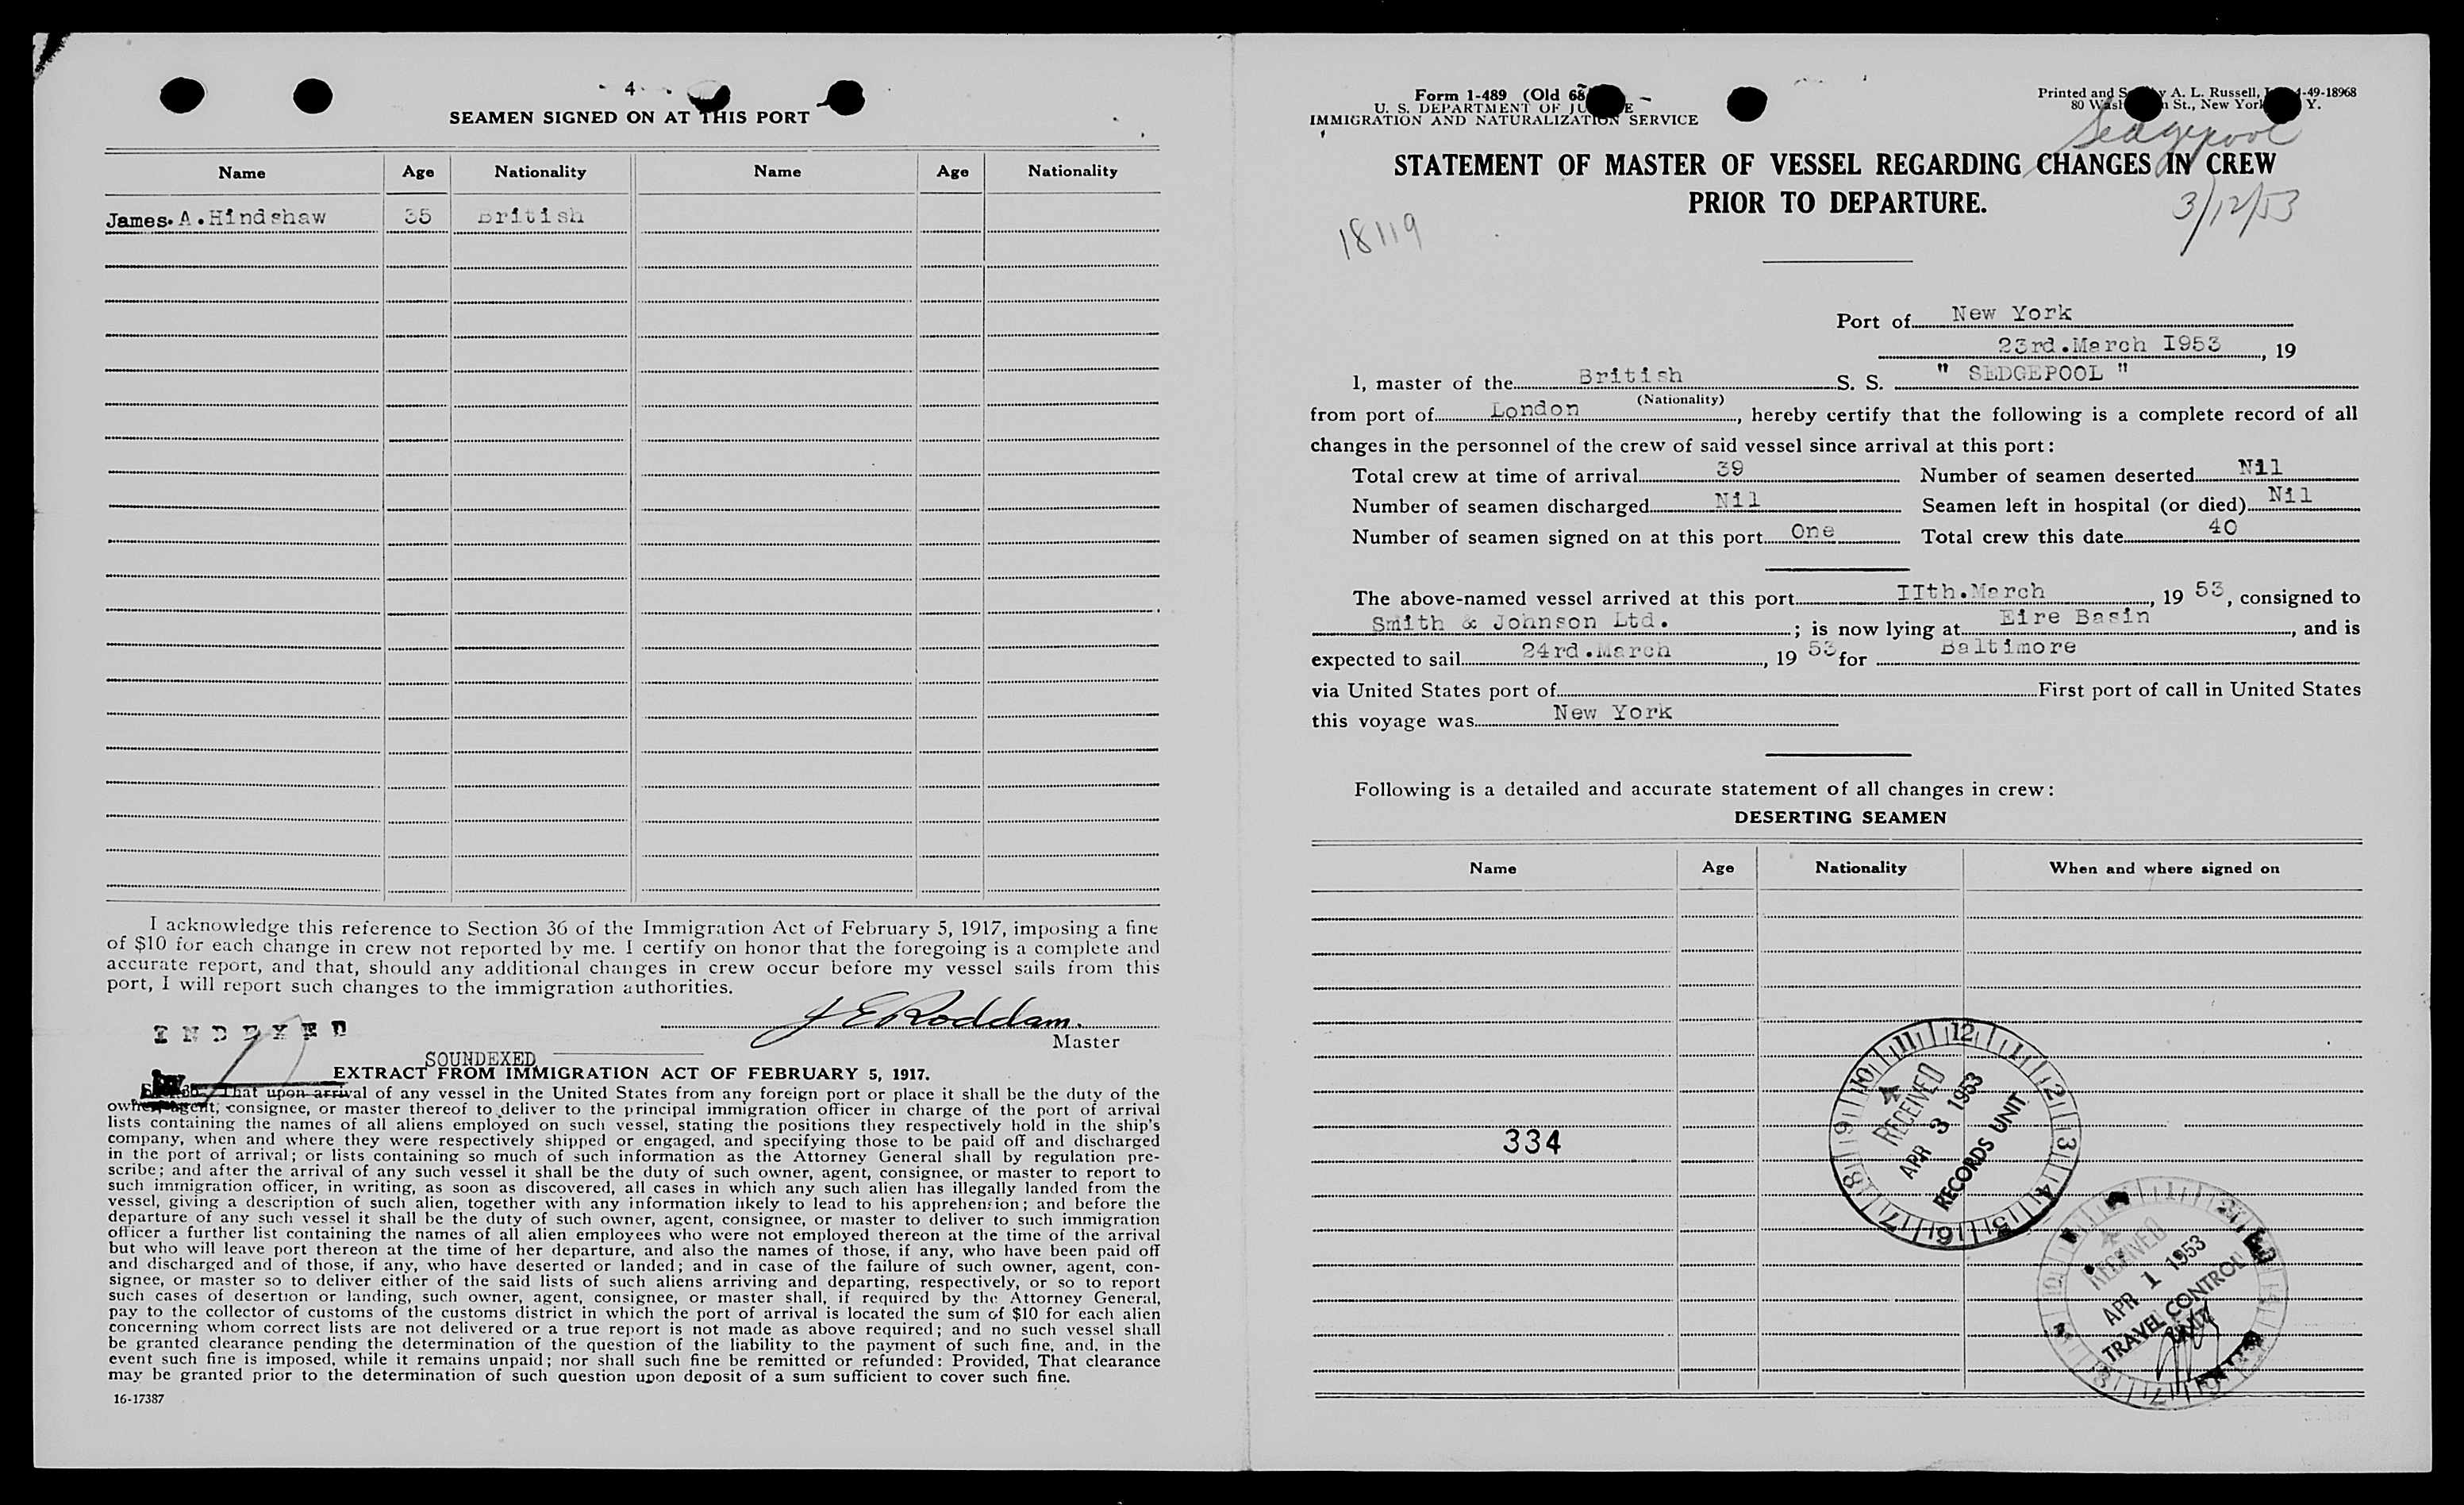 4
SEAMEN SIGNED ON AT THIS PORT
Name Age Nationality Name Age Nationality
James.A.Hindshaw 35 British
I acknowledge this reference to Section 36 of the Immigration Act of February 5, 1917, imposing a fine
of $10 for each change in crew not reported by me. I certify on honor that the foregoing is a complete and
accurate report, and that, should any additional changes in crew occur before my vessel sails from this
port, I will report such changes to the immigration authorities.
J E Roddam.
Master
INDEXED
SOUNDEXED
EXTRACT FROM IMMIGRATION ACT OF FEBRUARY 5, 1917.
That upon arrival of any vessel in the United States from any foreign port or place it shall be the duty of the
owner, agent, consignee, or master thereof to deliver to the principal immigration officer in charge of the port of arrival
lists containing the names of all aliens employed on such vessel, stating the positions they respectively hold in the ship's
company, when and where they were respectively shipped or engaged, and specifying those to be paid off and discharged
in the port of arrival; or lists containing so much of such information as the Attorney General shall by regulation pre-
scribe; and after the arrival of any such vessel it shall be the duty of such owner, agent, consignee, or master to report to
such immigration officer, in writing, as soon as discovered, all cases in which any such alien has illegally landed from the
vessel, giving a description of such alien, together with any information likely to lead to his apprehension; and before the
departure of any such vessel it shall be the duty of such owner, agent, consignee, or master to deliver to such immigration
officer a further list containing the names of all alien employees who were not employed thereon at the time of the arrival
but who will leave port thereon at the time of her departure, and also the names of those, if any, who have been paid off
and discharged and of those, if any, who have deserted or landed; and in case of the failure of such owner, agent, con-
signee, or master so to deliver either of the said lists of such aliens arriving and departing, respectively, or so to report
such cases of desertion or landing, such owner, agent, consignee, or master shall, if required by the Attorney General,
pay to the collector of customs of the customs district in which the port of arrival is located the sum of $10 for each alien
concerning whom correct lists are not delivered or a true report is not made as above required; and no such vessel shall
be granted clearance pending the determination of the question of the liability to the payment of such fine, and, in the
event such fine is imposed, while it remains unpaid; nor shall such fine be remitted or refunded: Provided, That clearance
may be granted prior to the determination of such question upon deposit of a sum sufficient to cover such fine.
16-17387
Form I-489 (Old 68
U. S. DEPARTMENT OF JUSTICE
IMMIGRATION AND NATURALIZATION SERVICE
Printed and Sold by A. L. Russell, 4-49-18968
80 Washington St., New York N. Y.
Sedgepool
STATEMENT OF MASTER OF VESSEL REGARDING CHANGES IN CREW
PRIOR TO DEPARTURE.
3/12/53
18119
Port of New York
23rd.March I953, 19
I, master of the British S. S. " SEDGEPOOL "
(Nationality)
from port of London, hereby certify that the following is a complete record of all
changes in the personnel of the crew of said vessel since arrival at this port:
Total crew at time of arrival 39 Number of seamen deserted Nil
Number of seamen discharged Nil Seamen left in hospital (or died) Nil
Number of seamen signed on at this port One Total crew this date 40
The above-named vessel arrived at this port IIth.March, 19 53, consigned to
Smith & Johnson Ltd.; is now lying at Eire Basin, and is
expected to sail 24rd.March, 19 53 for Baltimore
via United States port of First port of call in United States
this voyage was New York
Following is a detailed and accurate statement of all changes in crew:
DESERTING SEAMEN
Name Age Nationality When and where signed on
334
RECEIVED
APR 3 1953
RECORDS UNIT
RECEIVED
APR 1 1953
TRAVEL CONTROL
UNIT